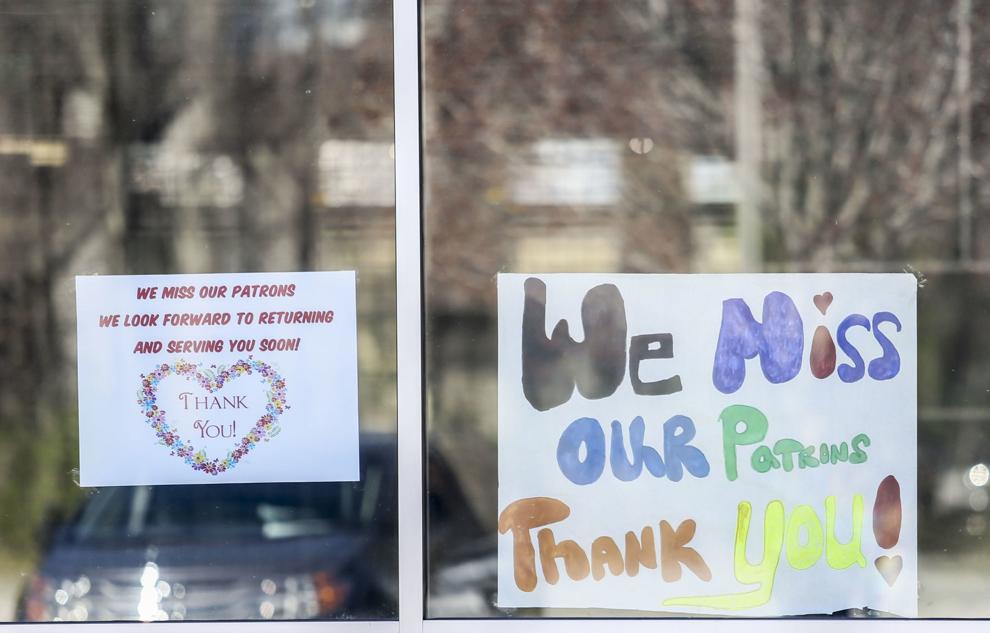 WE MISS OUR PATRONS
WE LOOK FORWARD TO RETURNING
AND SERVING YOU SOON!
THANK
YOU!
We Miss
OUR PaTRONS
THANK YOU!